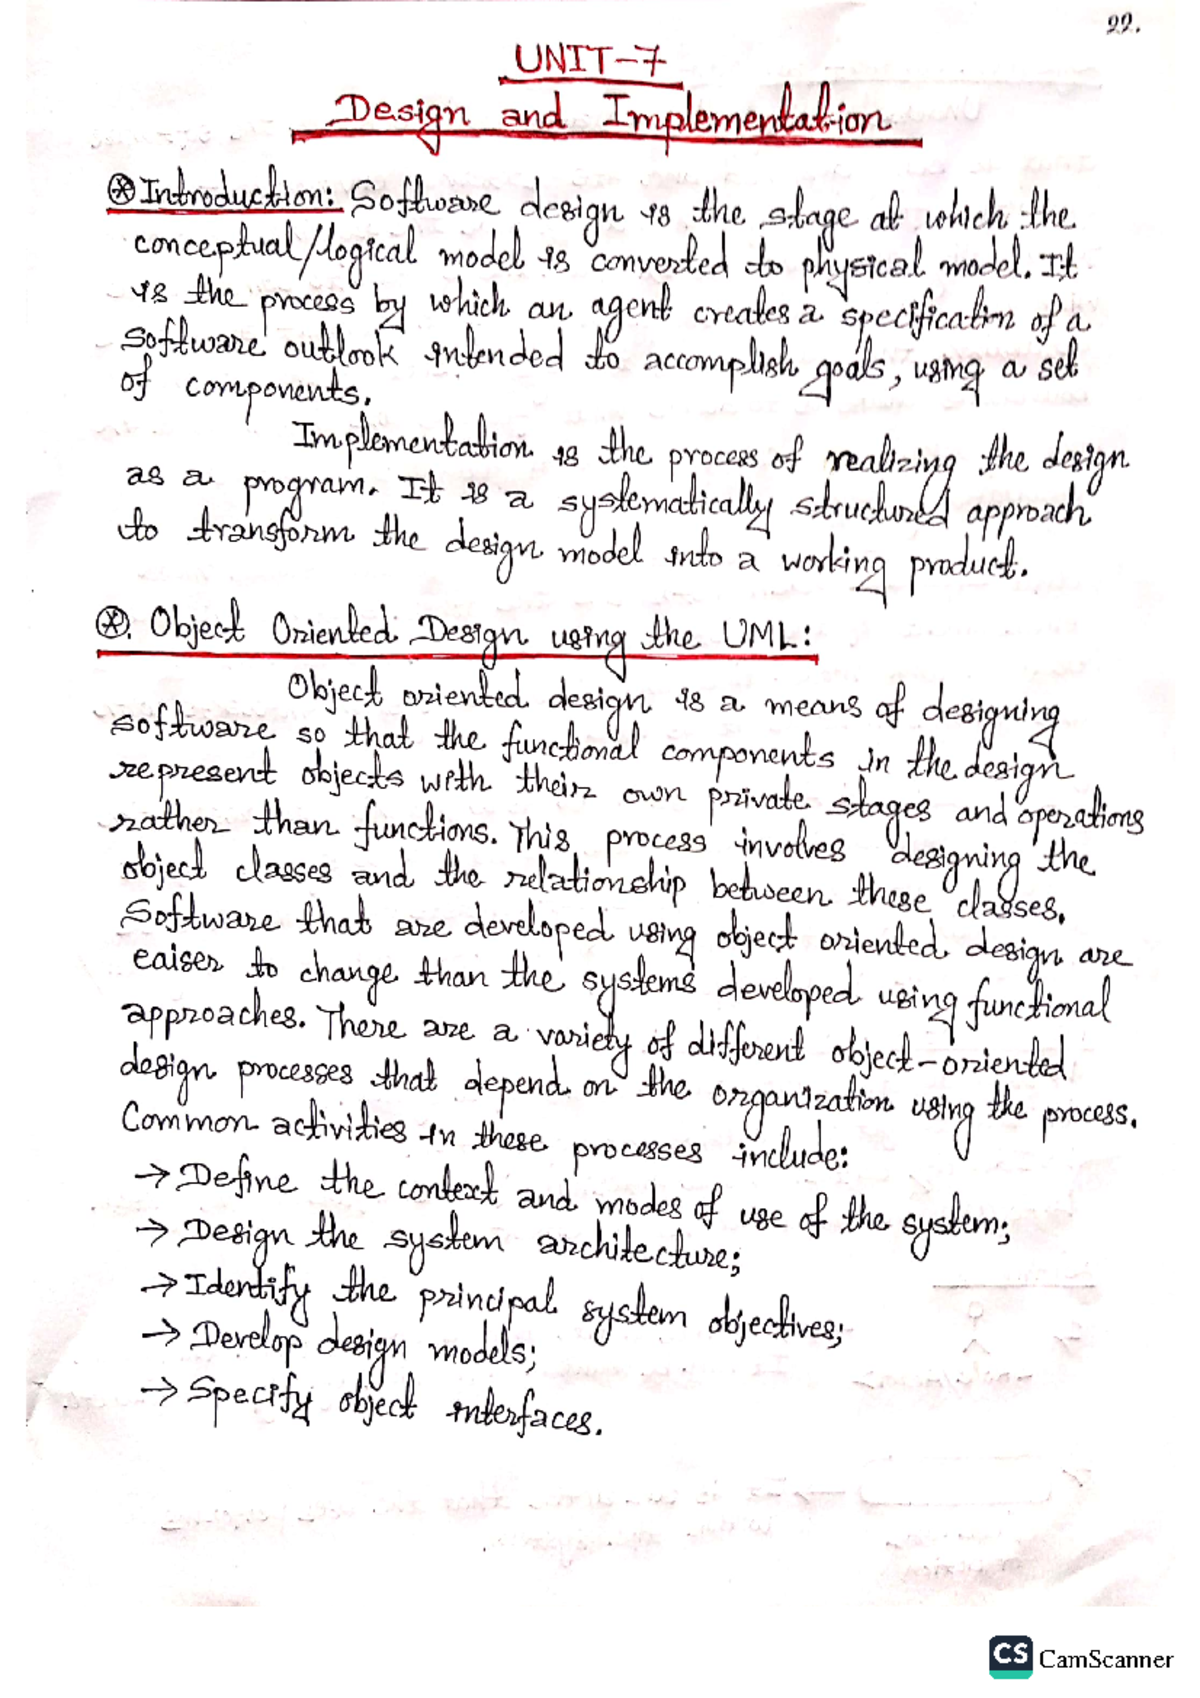 22.
UNIT-7
Design and Implementation
⊛ Introduction: Software design is the stage at which the
conceptual/logical model is converted to physical model. It
is the process by which an agent creates a specification of a
software outlook intended to accomplish goals, using a set
of components.
Implementation is the process of realizing the design
as a program. It is a systematically structured approach
to transform the design model into a working product.
⊛. Object Oriented Design using the UML:
Object oriented design is a means of designing
software so that the functional components in the design
represent objects with their own private stages and operations
rather than functions. This process involves designing the
object classes and the relationship between these classes.
Software that are developed using object oriented design are
eaiser to change than the systems developed using functional
approaches. There are a variety of different object-oriented
design processes that depend on the organization using the process.
Common activities in these processes include:
→ Define the context and modes of use of the system;
→ Design the system architecture;
→ Identify the principal system objectives;
→ Develop design models;
→ Specify object interfaces.
CS CamScanner